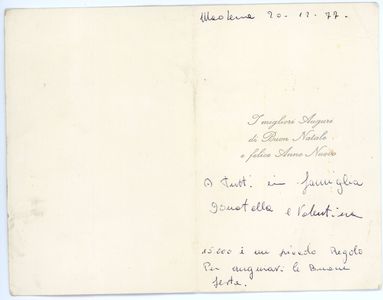 Modena 20.12.77.
I migliori Auguri
di Buon Natale
e felice Anno Nuovo
A Tutti in famiglia
Donatella e Valentina
15.000 è un piccolo Regalo
Per augurarvi le Buone
feste.